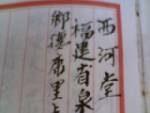 西河堂
福建省泉
鄉德康里